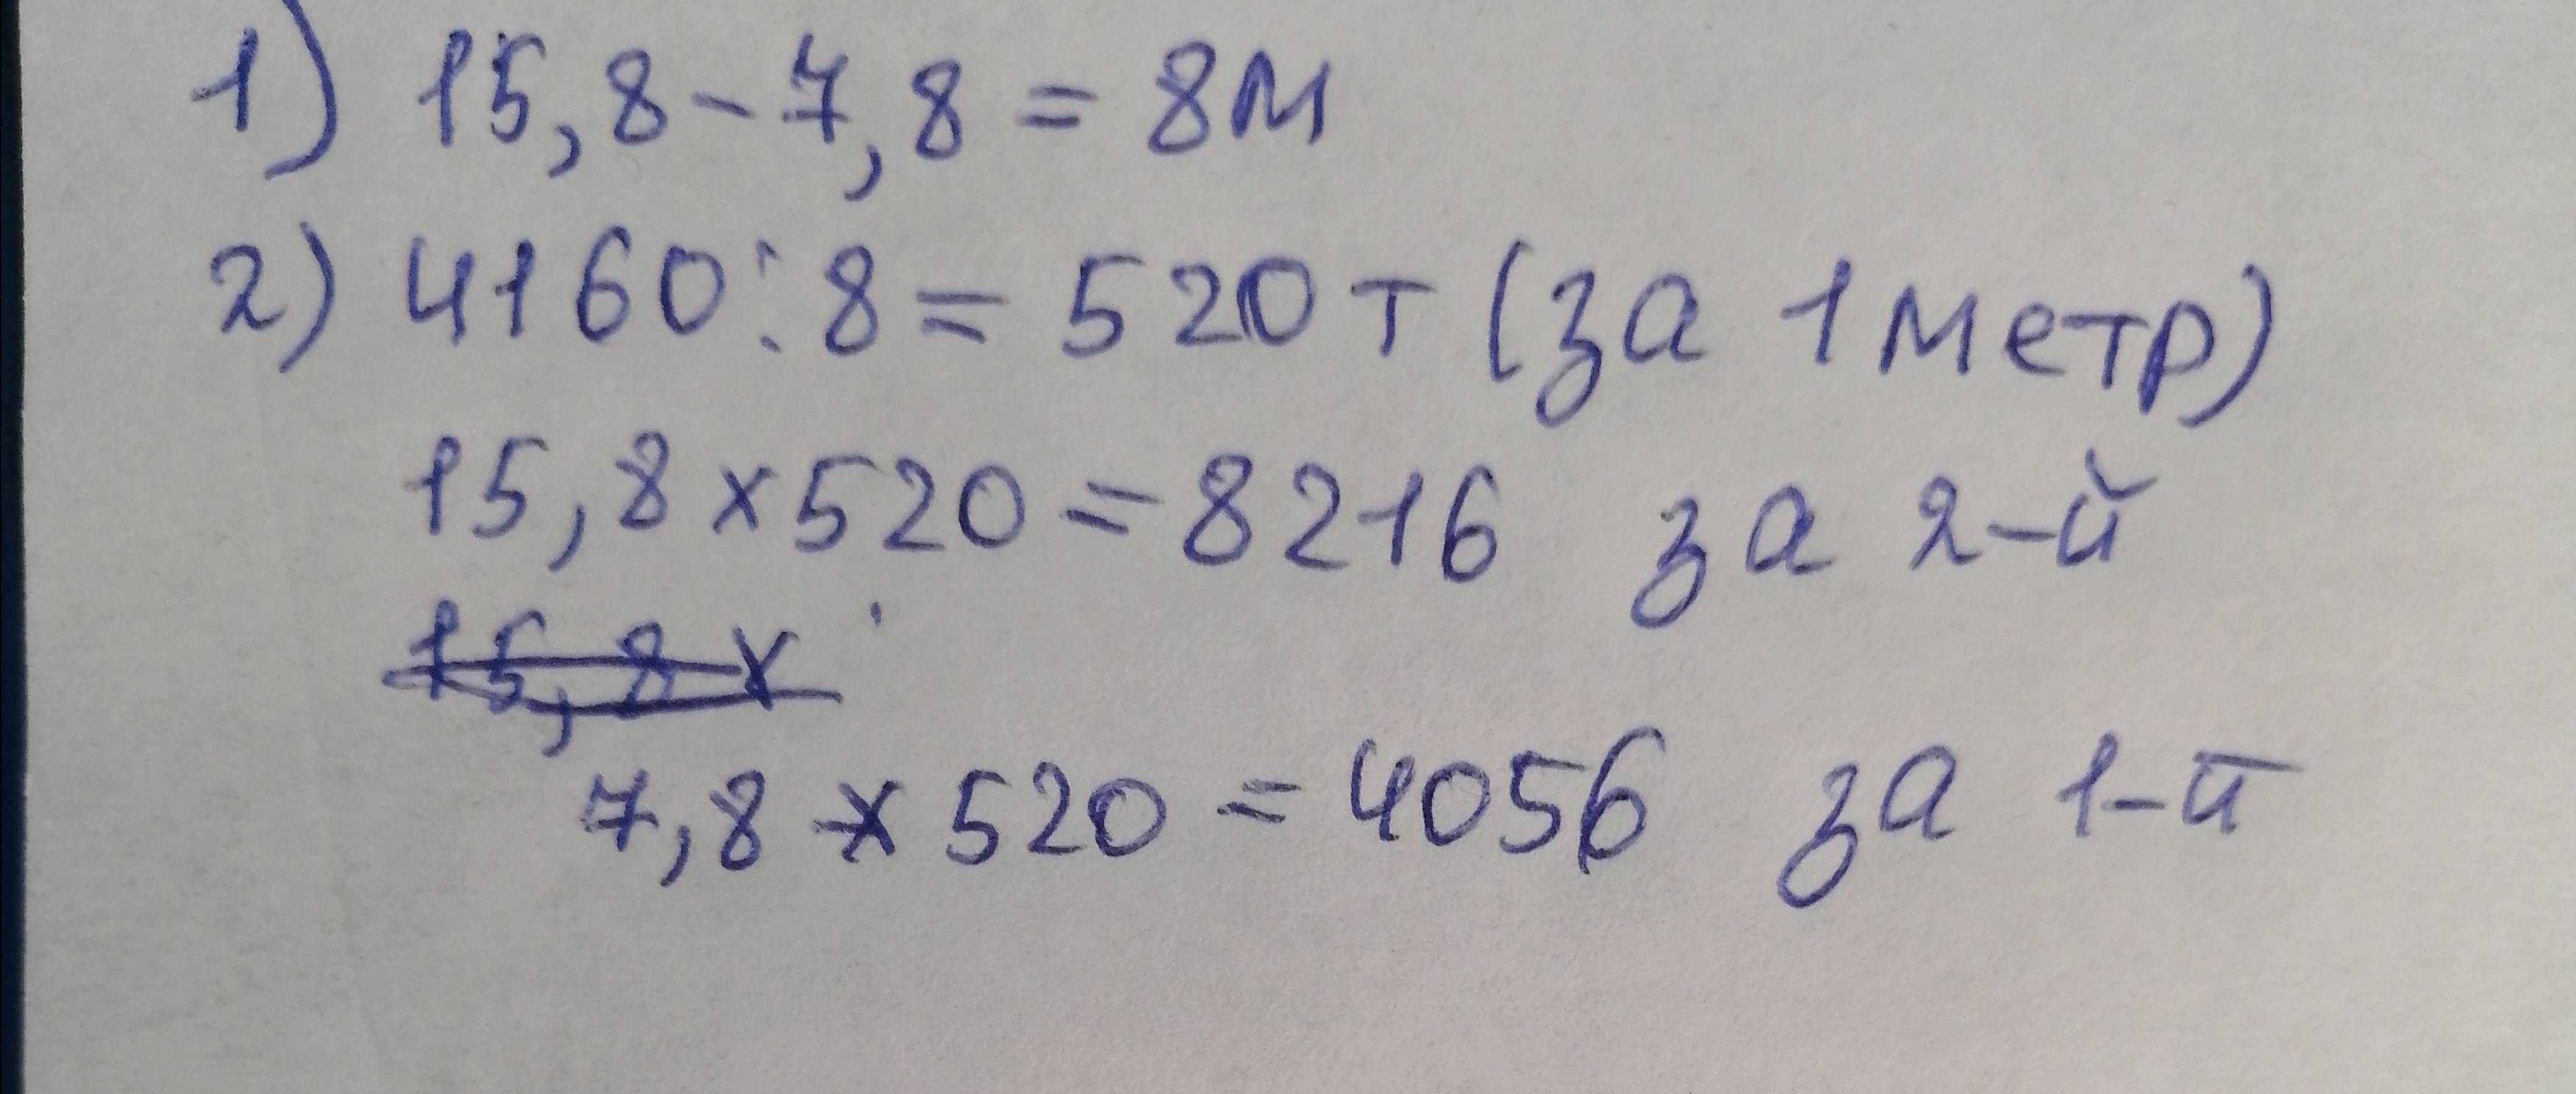 1) 15,8-7,8=8м
2) 4160:8=520т (за 1метр)
15,8x520=8216 за 2-й
15,8x
7,8x520=4056 за 1-й